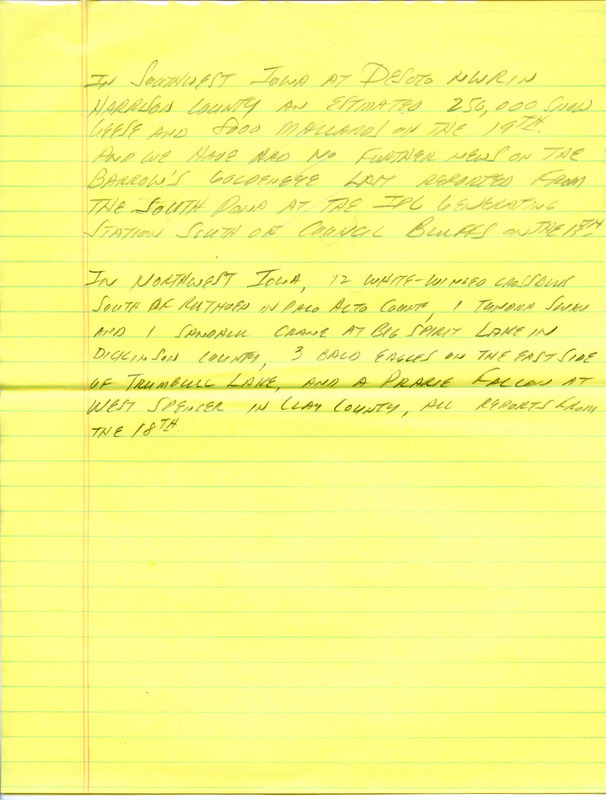 IN SOUTHWEST IOWA AT DESOTO NWR IN
HARRISON COUNTY AN ESTIMATED 250,000 SNOW
GEESE AND 8000 MALLARDS ON THE 19TH.
AND WE HAVE HAD NO FURTHER NEWS ON THE
BARROW'S GOLDENEYE LAST REPORTED FROM
THE SOUTH POND AT THE IPL GENERATING
STATION SOUTH OF COUNCIL BLUFFS ON THE 13TH
IN NORTHWEST IOWA, 12 WHITE-WINGED CROSSBILLS
SOUTH OF RUTHVEN IN PALO ALTO COUNTY, 1 TUNDRA SWAN
AND 1 SANDHILL CRANE AT BIG SPIRIT LAKE IN
DICKINSON COUNTY, 3 BALD EAGLES ON THE EAST SIDE
OF TRUMBULL LAKE, AND A PRARIE FALCON AT
WEST SPENCER IN CLAY COUNTY, ALL REPORTS FROM
THE 18TH